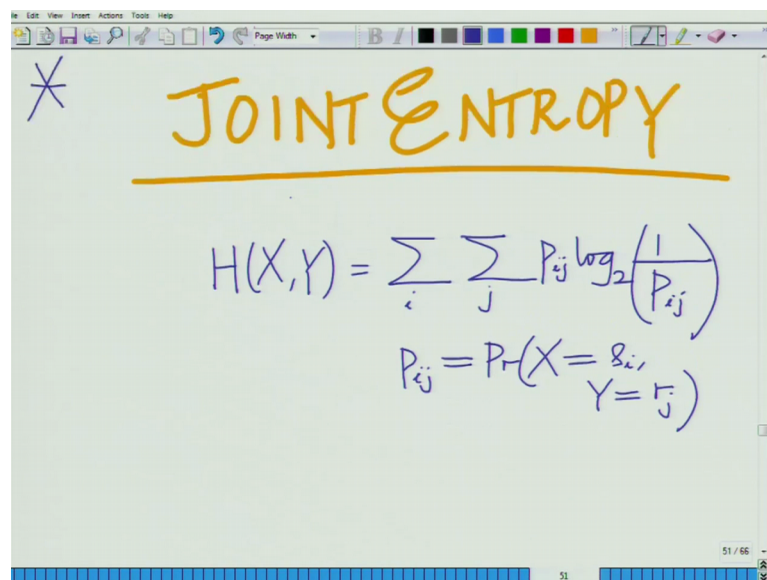 File Edit View Insert Actions Tools Help
Page Width
B I
JOINT ENTROPY
H(X,Y) = ∑_i ∑_j P_ij log_2 (1/P_ij)
P_ij = Pr(X = s_i,
Y = r_j)
51 / 66
51